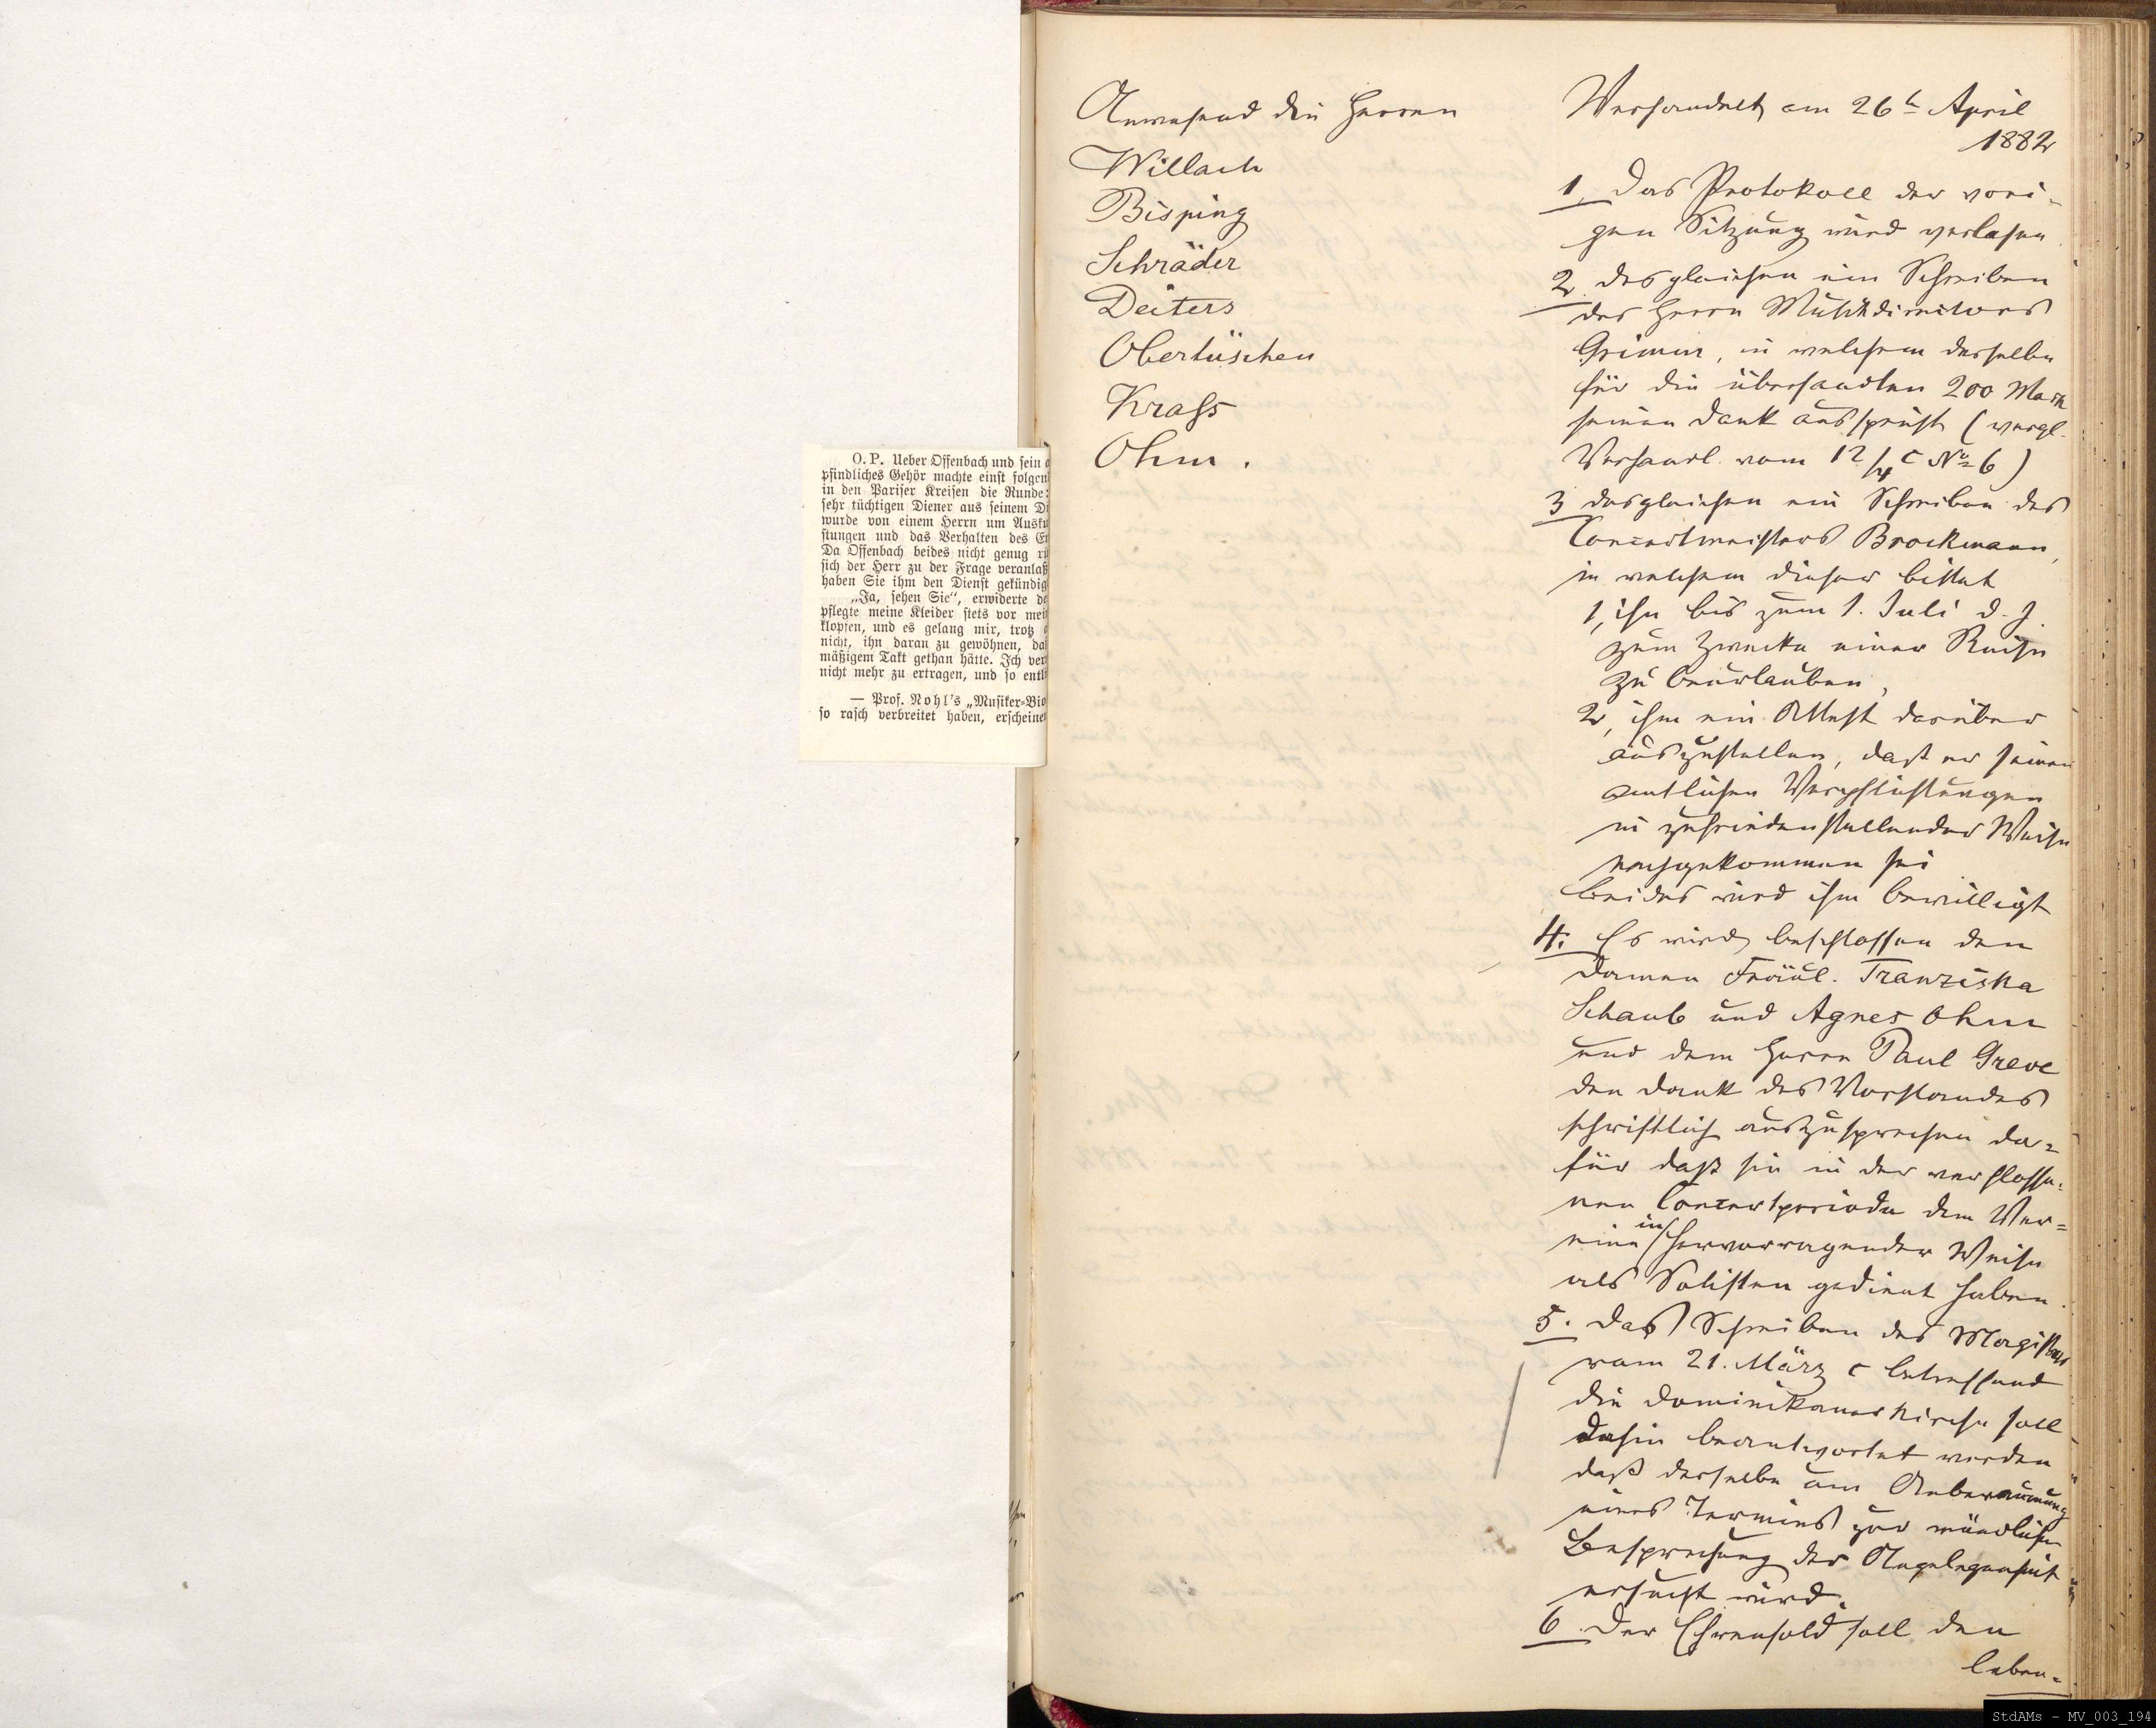 O. P. Ueber Offenbach und sein
pfindliches Gehör machte einst folgen
in den Pariser Kreisen die Runde:
sehr tüchtigen Diener aus seinem Di
wurde von einem Herrn um Ausku
stungen und das Verhalten des En
Da Offenbach beides nicht genug rü
sich der Herr zu der Frage veranlaß
haben Sie ihm den Dienst gekündig
„Ja, sehen Sie“, erwiderte de
pflegte meine Kleider stets vor mei
klopfen, und es gelang mir, trotz
nicht, ihn daran zu gewöhnen, daß
mäßigem Takt gethan hätte. Ich ver
nicht mehr zu ertragen, und so entl
— Prof. Nohl's „Musiker-Bio
so rasch verbreitet haben, erscheinen
Anwesend die Herren
Willach
Bisping
Schräder
Deiters
Obertüschen
Kraß
Ohm.
Verhandelt am 26t April
1882
1, Das Protokoll der vori-
gen Sitzung wird verlesen.
2. desgleichen ein Schreiben
des Herrn Musikdirectors
Grimm, in welchem derselbe
für die übersandten 200 Mark
seinen Dank ausspricht (vergl.
Verhandl. vom 12/4 c No 6)
3 desgleichen ein Schreiben des
Concertmeisters Brockmann,
in welchem dieser bittet
1, ihn bis zum 1. Juli d. J.
zum Zwecke einer Reise
zu beurlauben,
2, ihm ein Attest darüber
auszustellen, daß er seinen
amtlichen Verpflichtungen
in zufriedenstellender Weise
nachgekommen sei
beides wird ihm bewilligt
4. Es wird beschlossen den
Damen Fräul. Franziska
Schaub und Agnes Ohm
und dem Herrn Paul Greve
den Dank des Vorstandes
schriftlich auszusprechen da-
für daß sie in der verflosse-
nen Concertperiode dem Ver-
eine in hervorragender Weise
als Solisten gedient haben.
5. Das Schreiben des Magistrats
vom 21. März c betreffend
die Dominikanerkirche soll
dahin beantwortet werden
daß derselbe um Anberaumung
eines Termins zur mündlichen
Besprechung der Angelegenheit
ersucht wird.
6. Der Ehrensold soll den
leben-
StdAMs - MV_003_194